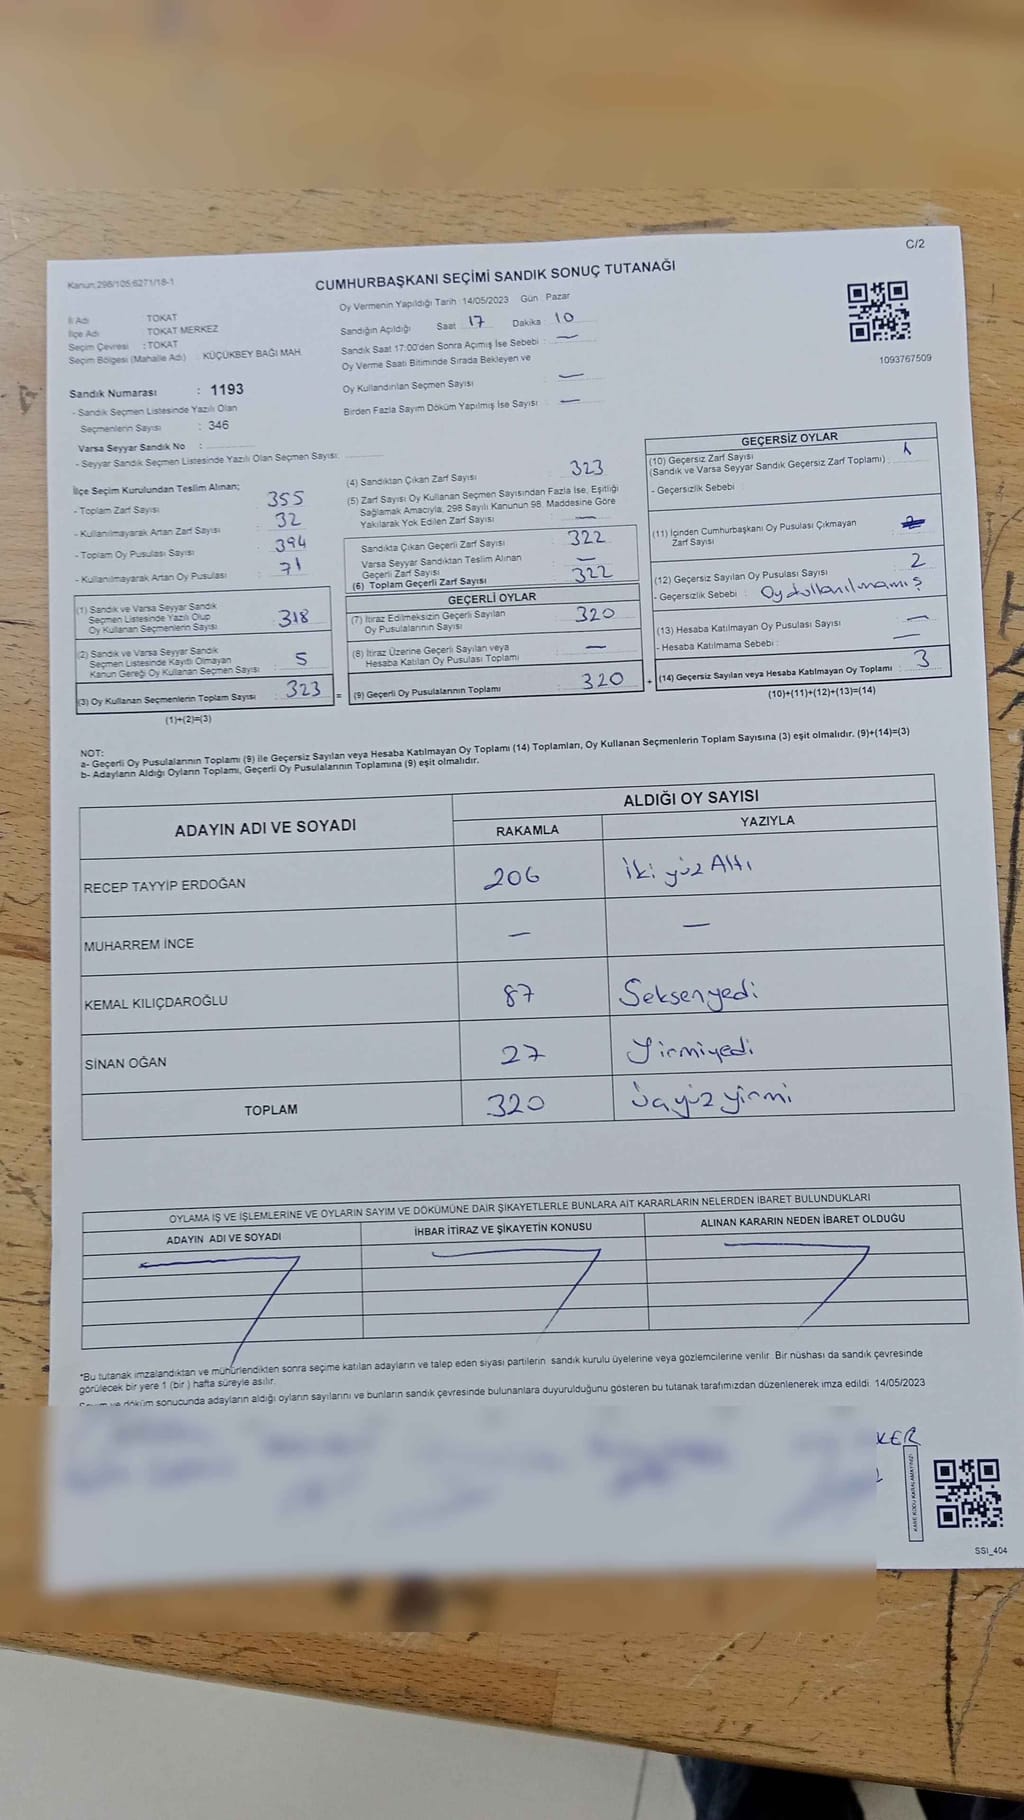 C/2
Kanun.298/105,6271/18-1
CUMHURBAŞKANI SEÇİMİ SANDIK SONUÇ TUTANAĞI
Oy Vermenin Yapıldığı Tarih : 14/05/2023 Gün : Pazar
İl Adı : TOKAT
İlçe Adı : TOKAT MERKEZ
Seçim Çevresi : TOKAT
Seçim Bölgesi (Mahalle Adı) : KÜÇÜKBEY BAĞI MAH.
Sandığın Açıldığı Saat 17 Dakika 10
Sandık Saat 17:00'den Sonra Açımış İse Sebebi : —
Oy Verme Saati Bitiminde Sırada Bekleyen ve
Oy Kullandırılan Seçmen Sayısı : —
Birden Fazla Sayım Döküm Yapılmış İse Sayısı : —
1093767509
Sandık Numarası : 1193
- Sandık Seçmen Listesinde Yazılı Olan
Seçmenlerin Sayısı : 346
Varsa Seyyar Sandık No :
- Seyyar Sandık Seçmen Listesinde Yazılı Olan Seçmen Sayısı:
İlçe Seçim Kurulundan Teslim Alınan;
- Toplam Zarf Sayısı : 355
- Kullanılmayarak Artan Zarf Sayısı : 32
- Toplam Oy Pusulası Sayısı : 394
- Kullanılmayarak Artan Oy Pusulası : 71
(1) Sandık ve Varsa Seyyar Sandık
Seçmen Listesinde Yazılı Olup
Oy Kullanan Seçmenlerin Sayısı : 318
(2) Sandık ve Varsa Seyyar Sandık
Seçmen Listesinde Kayıtlı Olmayan
Kanun Gereği Oy Kullanan Seçmen Sayısı : 5
(3) Oy Kullanan Seçmenlerin Toplam Sayısı : 323 =
(1)+(2)=(3)
(4) Sandıktan Çıkan Zarf Sayısı : 323
(5) Zarf Sayısı Oy Kullanan Seçmen Sayısından Fazla İse, Eşitliği
Sağlamak Amacıyla, 298 Sayılı Kanunun 98. Maddesine Göre
Yakılarak Yok Edilen Zarf Sayısı : —
Sandıkta Çıkan Geçerli Zarf Sayısı : 322
Varsa Seyyar Sandıktan Teslim Alınan
Geçerli Zarf Sayısı : —
(6) Toplam Geçerli Zarf Sayısı : 322
GEÇERLİ OYLAR
(7) İtiraz Edilmeksizin Geçerli Sayılan
Oy Pusulalarının Sayısı : 320
(8) İtiraz Üzerine Geçerli Sayılan veya
Hesaba Katılan Oy Pusulası Toplamı : —
(9) Geçerli Oy Pusulalarının Toplamı : 320 +
GEÇERSİZ OYLAR
(10) Geçersiz Zarf Sayısı
(Sandık ve Varsa Seyyar Sandık Geçersiz Zarf Toplamı) : 1
- Geçersizlik Sebebi :
(11) İçinden Cumhurbaşkanı Oy Pusulası Çıkmayan
Zarf Sayısı
(12) Geçersiz Sayılan Oy Pusulası Sayısı : 2
- Geçersizlik Sebebi : Oy kullanılmamış
(13) Hesaba Katılmayan Oy Pusulası Sayısı : —
- Hesaba Katılmama Sebebi : —
(14) Geçersiz Sayılan veya Hesaba Katılmayan Oy Toplamı : 3
(10)+(11)+(12)+(13)=(14)
NOT:
a- Geçerli Oy Pusulalarının Toplamı (9) ile Geçersiz Sayılan veya Hesaba Katılmayan Oy Toplamı (14) Toplamları, Oy Kullanan Seçmenlerin Toplam Sayısına (3) eşit olmalıdır. (9)+(14)=(3)
b- Adayların Aldığı Oyların Toplamı, Geçerli Oy Pusulalarının Toplamına (9) eşit olmalıdır.
ADAYIN ADI VE SOYADI
ALDIĞI OY SAYISI
RAKAMLA YAZIYLA
RECEP TAYYİP ERDOĞAN 206 iki yüz Altı
MUHARREM İNCE — —
KEMAL KILIÇDAROĞLU 87 Seksenyedi
SİNAN OĞAN 27 Yirmiyedi
TOPLAM 320 üçyüz yirmi
OYLAMA İŞ VE İŞLEMLERİNE VE OYLARIN SAYIM VE DÖKÜMÜNE DAİR ŞİKAYETLERLE BUNLARA AİT KARARLARIN NELERDEN İBARET BULUNDUKLARI
ADAYIN ADI VE SOYADI İHBAR İTİRAZ VE ŞİKAYETİN KONUSU ALINAN KARARIN NEDEN İBARET OLDUĞU
*Bu tutanak imzalandıktan ve mühürlendikten sonra seçime katılan adayların ve talep eden siyasi partilerin sandık kurulu üyelerine veya gözlemcilerine verilir. Bir nüshası da sandık çevresinde
görülecek bir yere 1 (bir) hafta süreyle asılır.
Sayım ve döküm sonucunda adayların aldığı oyların sayılarını ve bunların sandık çevresinde bulunanlara duyurulduğunu gösteren bu tutanak tarafımızdan düzenlenerek imza edildi. 14/05/2023
KER
KARE KODU KARALAMAYINIZ!
SSI_404